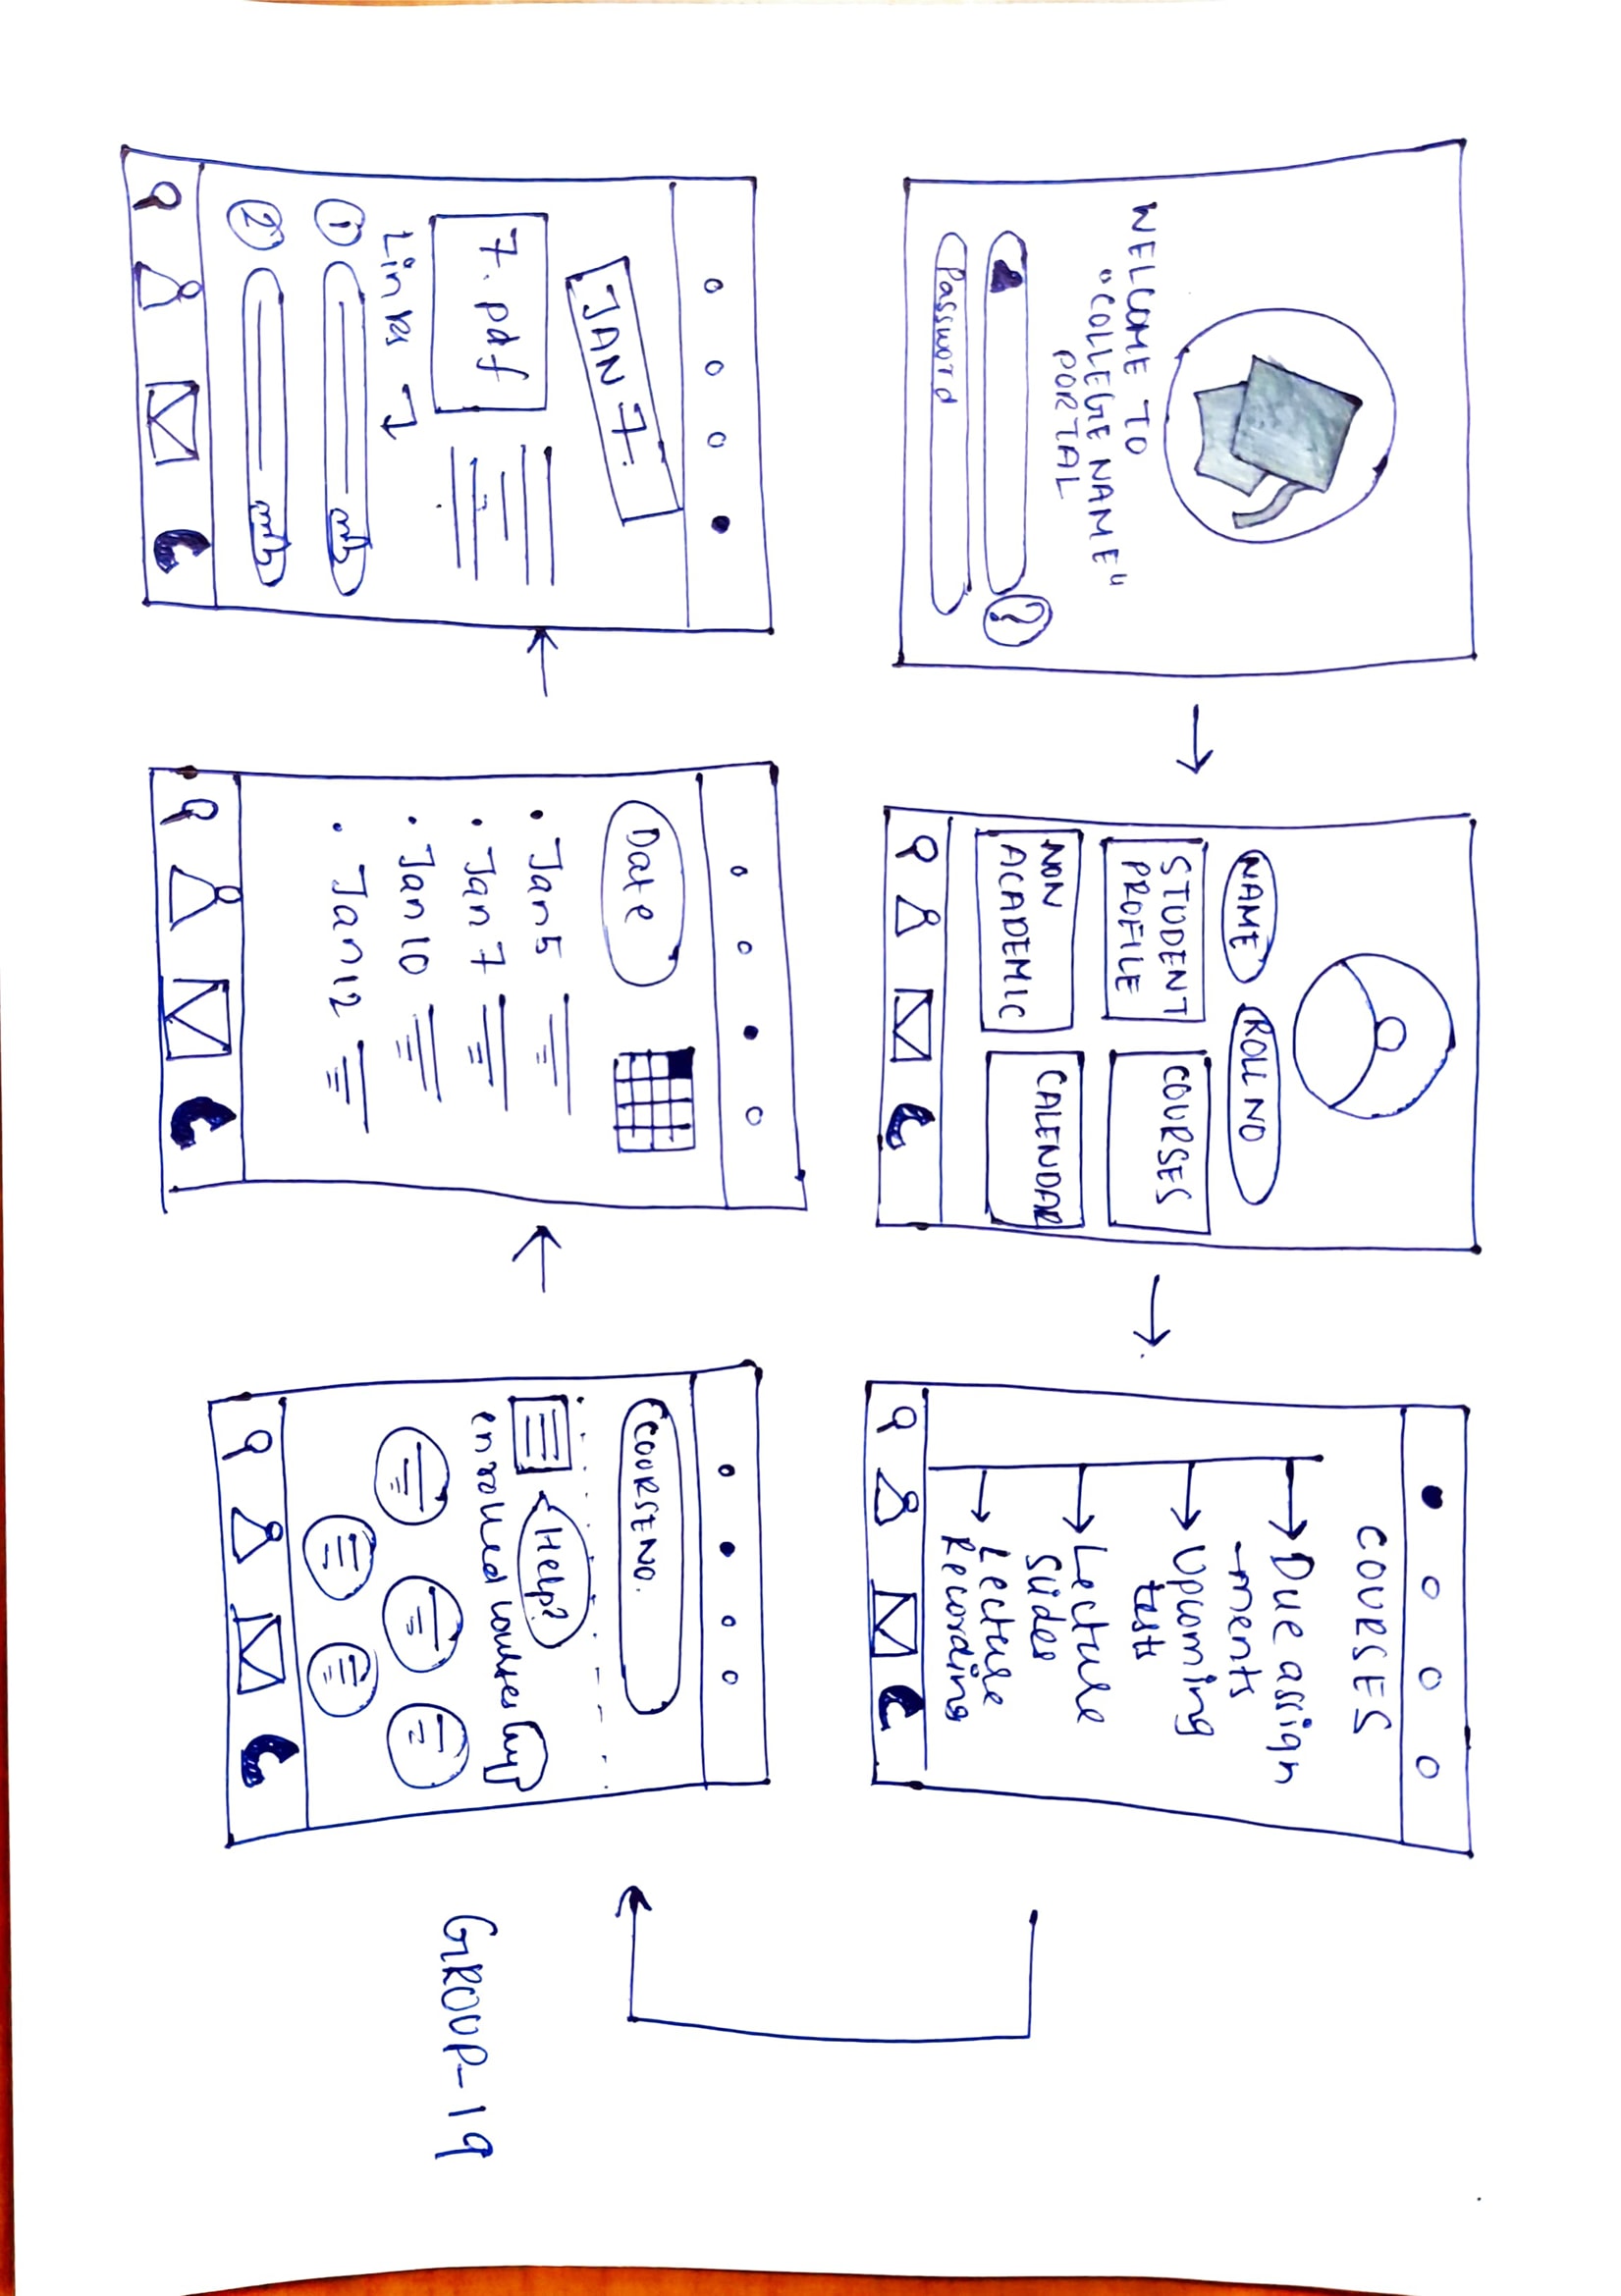 WELCOME TO
"COLLEGE NAME"
PORTAL
?
Password
NAME
ROLL NO
STUDENT
PROFILE
COURSES
NON
ACADEMIC
CALENDAR
COURSES
Due assign
-ments
Upcoming
tests
Lecture
Slides
Lecture
Recording
COURSE NO.
Help?
enrolled courses
Date
• Jan 5
• Jan 7
• Jan 10
• Jan 12
JAN 7.
7.pdf
Links
1
2
GROUP-19